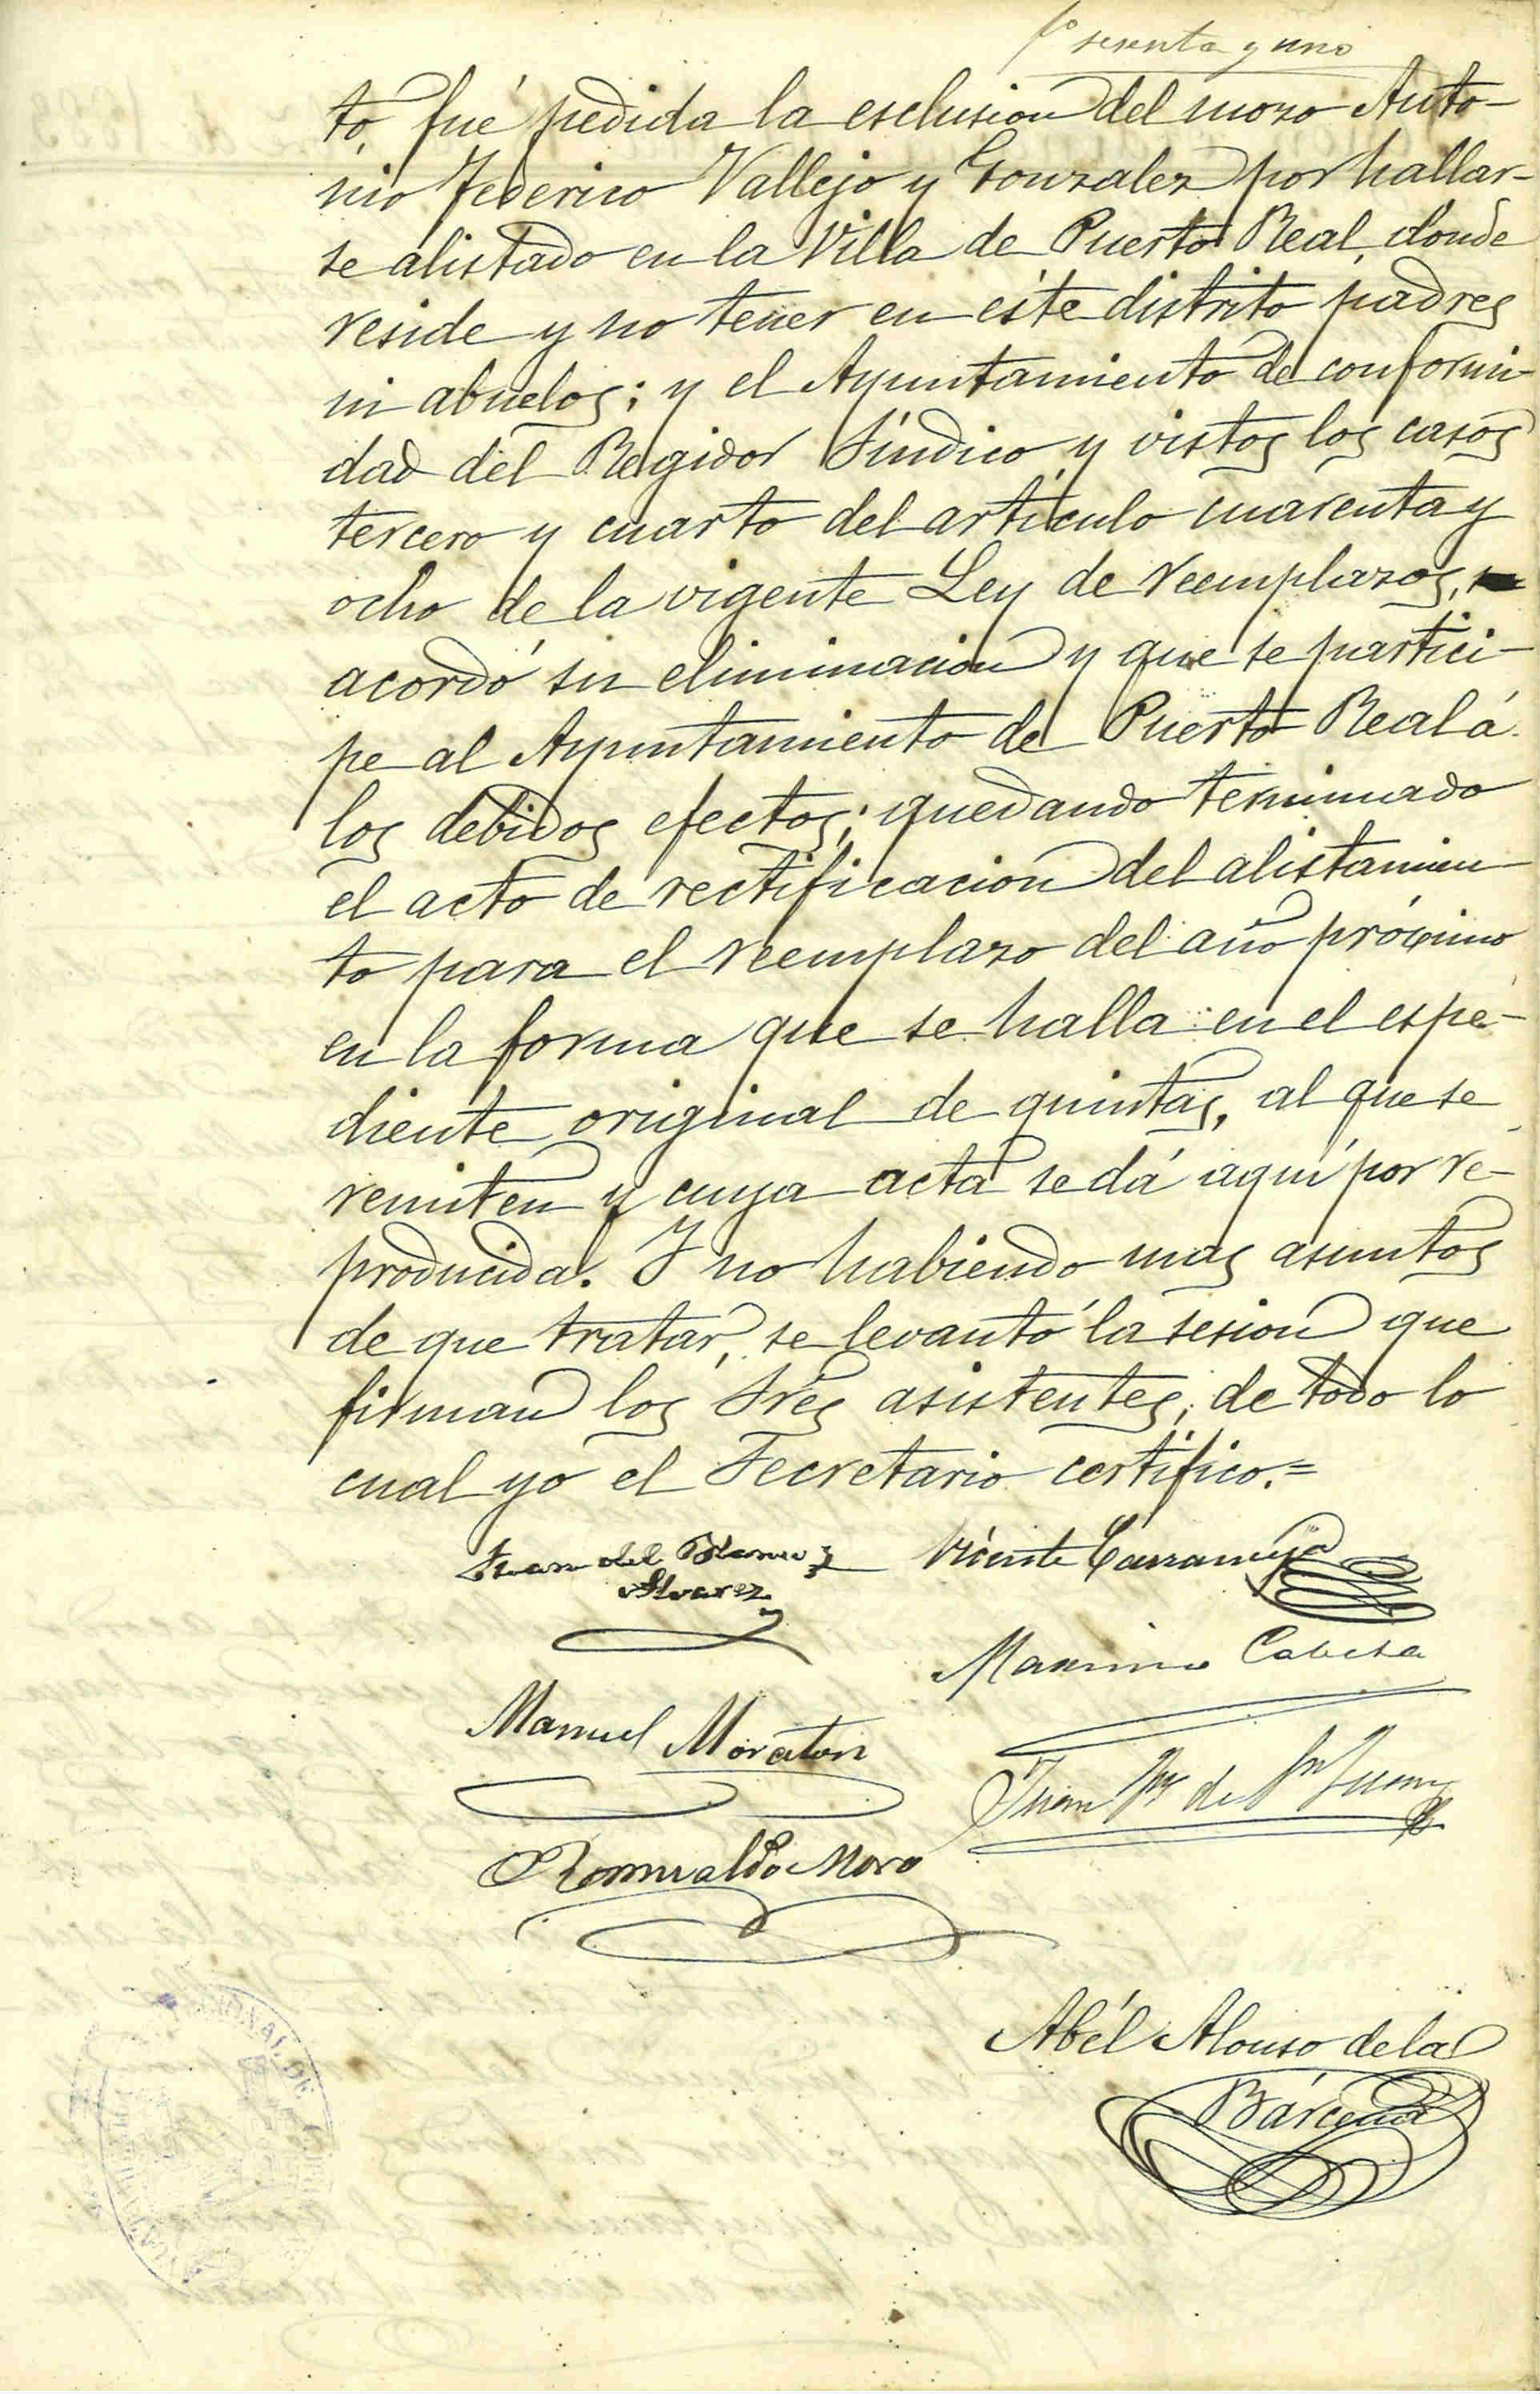 fº sesenta y uno
to, fué pedida la esclusion del mozo Anto-
nio Federico Vallejo y Gonzalez por hallar-
se alistado en la Villa de Puerto Real, donde
reside y no tener en éste distrito padres
ni abuelos; y el Ayuntamiento de conformi-
dad del Regidor Síndico y vistos los casos
tercero y cuarto del artículo cuarenta y
ocho de la vigente Ley de reemplazos,
acordó su eliminacion y que se partici-
pe al Ayuntamiento de Puerto Real á
los debidos efectos; quedando terminado
el acto de rectificacion del alistamien
to para el reemplazo del año próximo
en la forma que se halla en el espe-
diente original de quintas, al que se
remiten y cuya acta se dá aquí por re-
producida. Y no habiendo mas asuntos
de que tratar, se levantó la sesion que
firman los Sres asistentes, de todo lo
cual yo el Secretario certifico.=
Juan del Blanco y Vicente Carrameja
Alvarez
Maximino Cabeza
Manuel Moraton
Juan de Sn Juan
Romualdo Moro
Abél Alonso de la
Bárcena